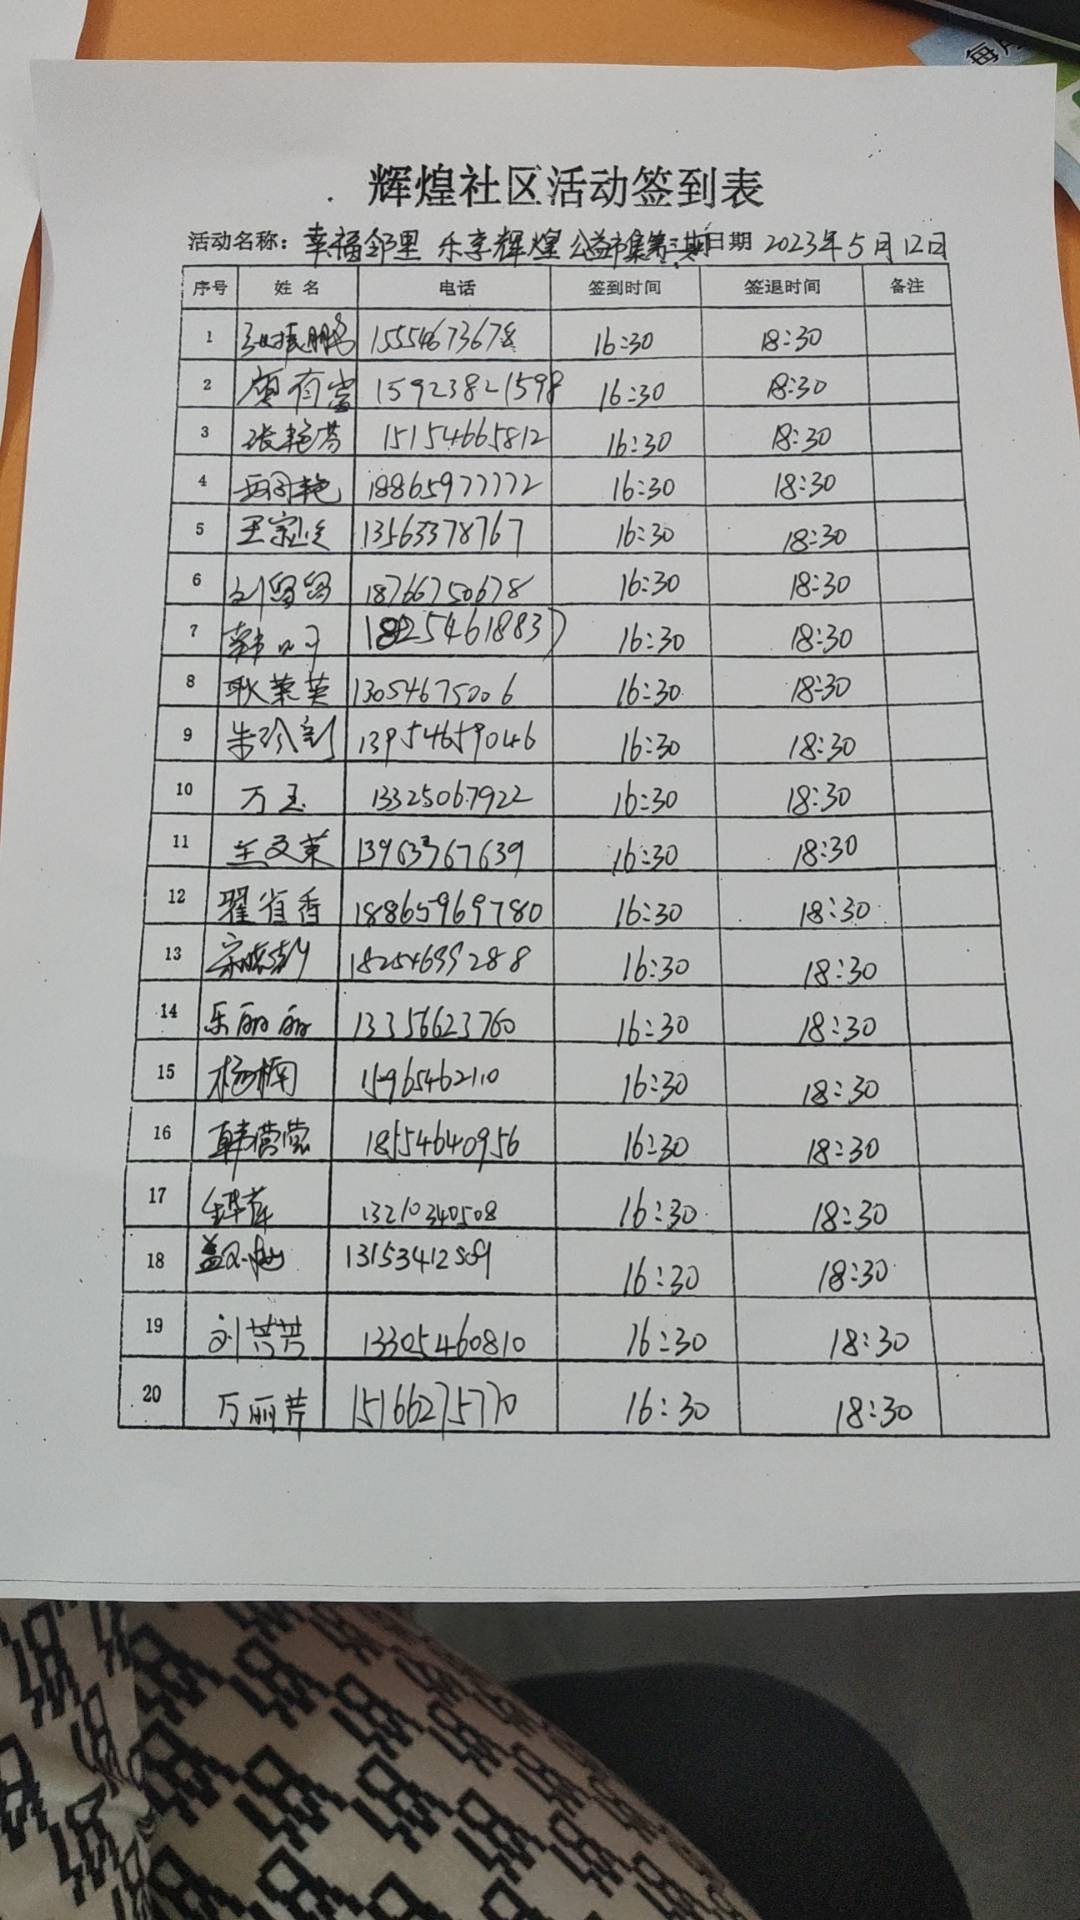 辉煌社区活动签到表
活动名称：幸福邻里 乐享辉煌 公益市集第三期 日期 2023年5月12日
序号 姓名 电话 签到时间 签退时间 备注
1 15554673678 16:30 18:30
2 15923821598 16:30 18:30
3 张艳芳 15154665812 16:30 18:30
4 18865977772 16:30 18:30
5 13563378767 16:30 18:30
6 刘留留 18766750678 16:30 18:30
7 16:30 18:30
8 耿荣英 13054675006 16:30 18:30
9 13954659046 16:30 18:30
10 万玉 13325067922 16:30 18:30
11 兰文英 13963367639 16:30 18:30
12 翟省香 18865969780 16:30 18:30
13 18254699288 16:30 18:30
14 乐丽丽 13356623760 16:30 18:30
15 杨楠 15965462110 16:30 18:30
16 韩营营 18554640956 16:30 18:30
17 13210340508 16:30 18:30
18 16:30 18:30
19 刘芳芳 13305460810 16:30 18:30
20 万丽芹 15166275770 16:30 18:30